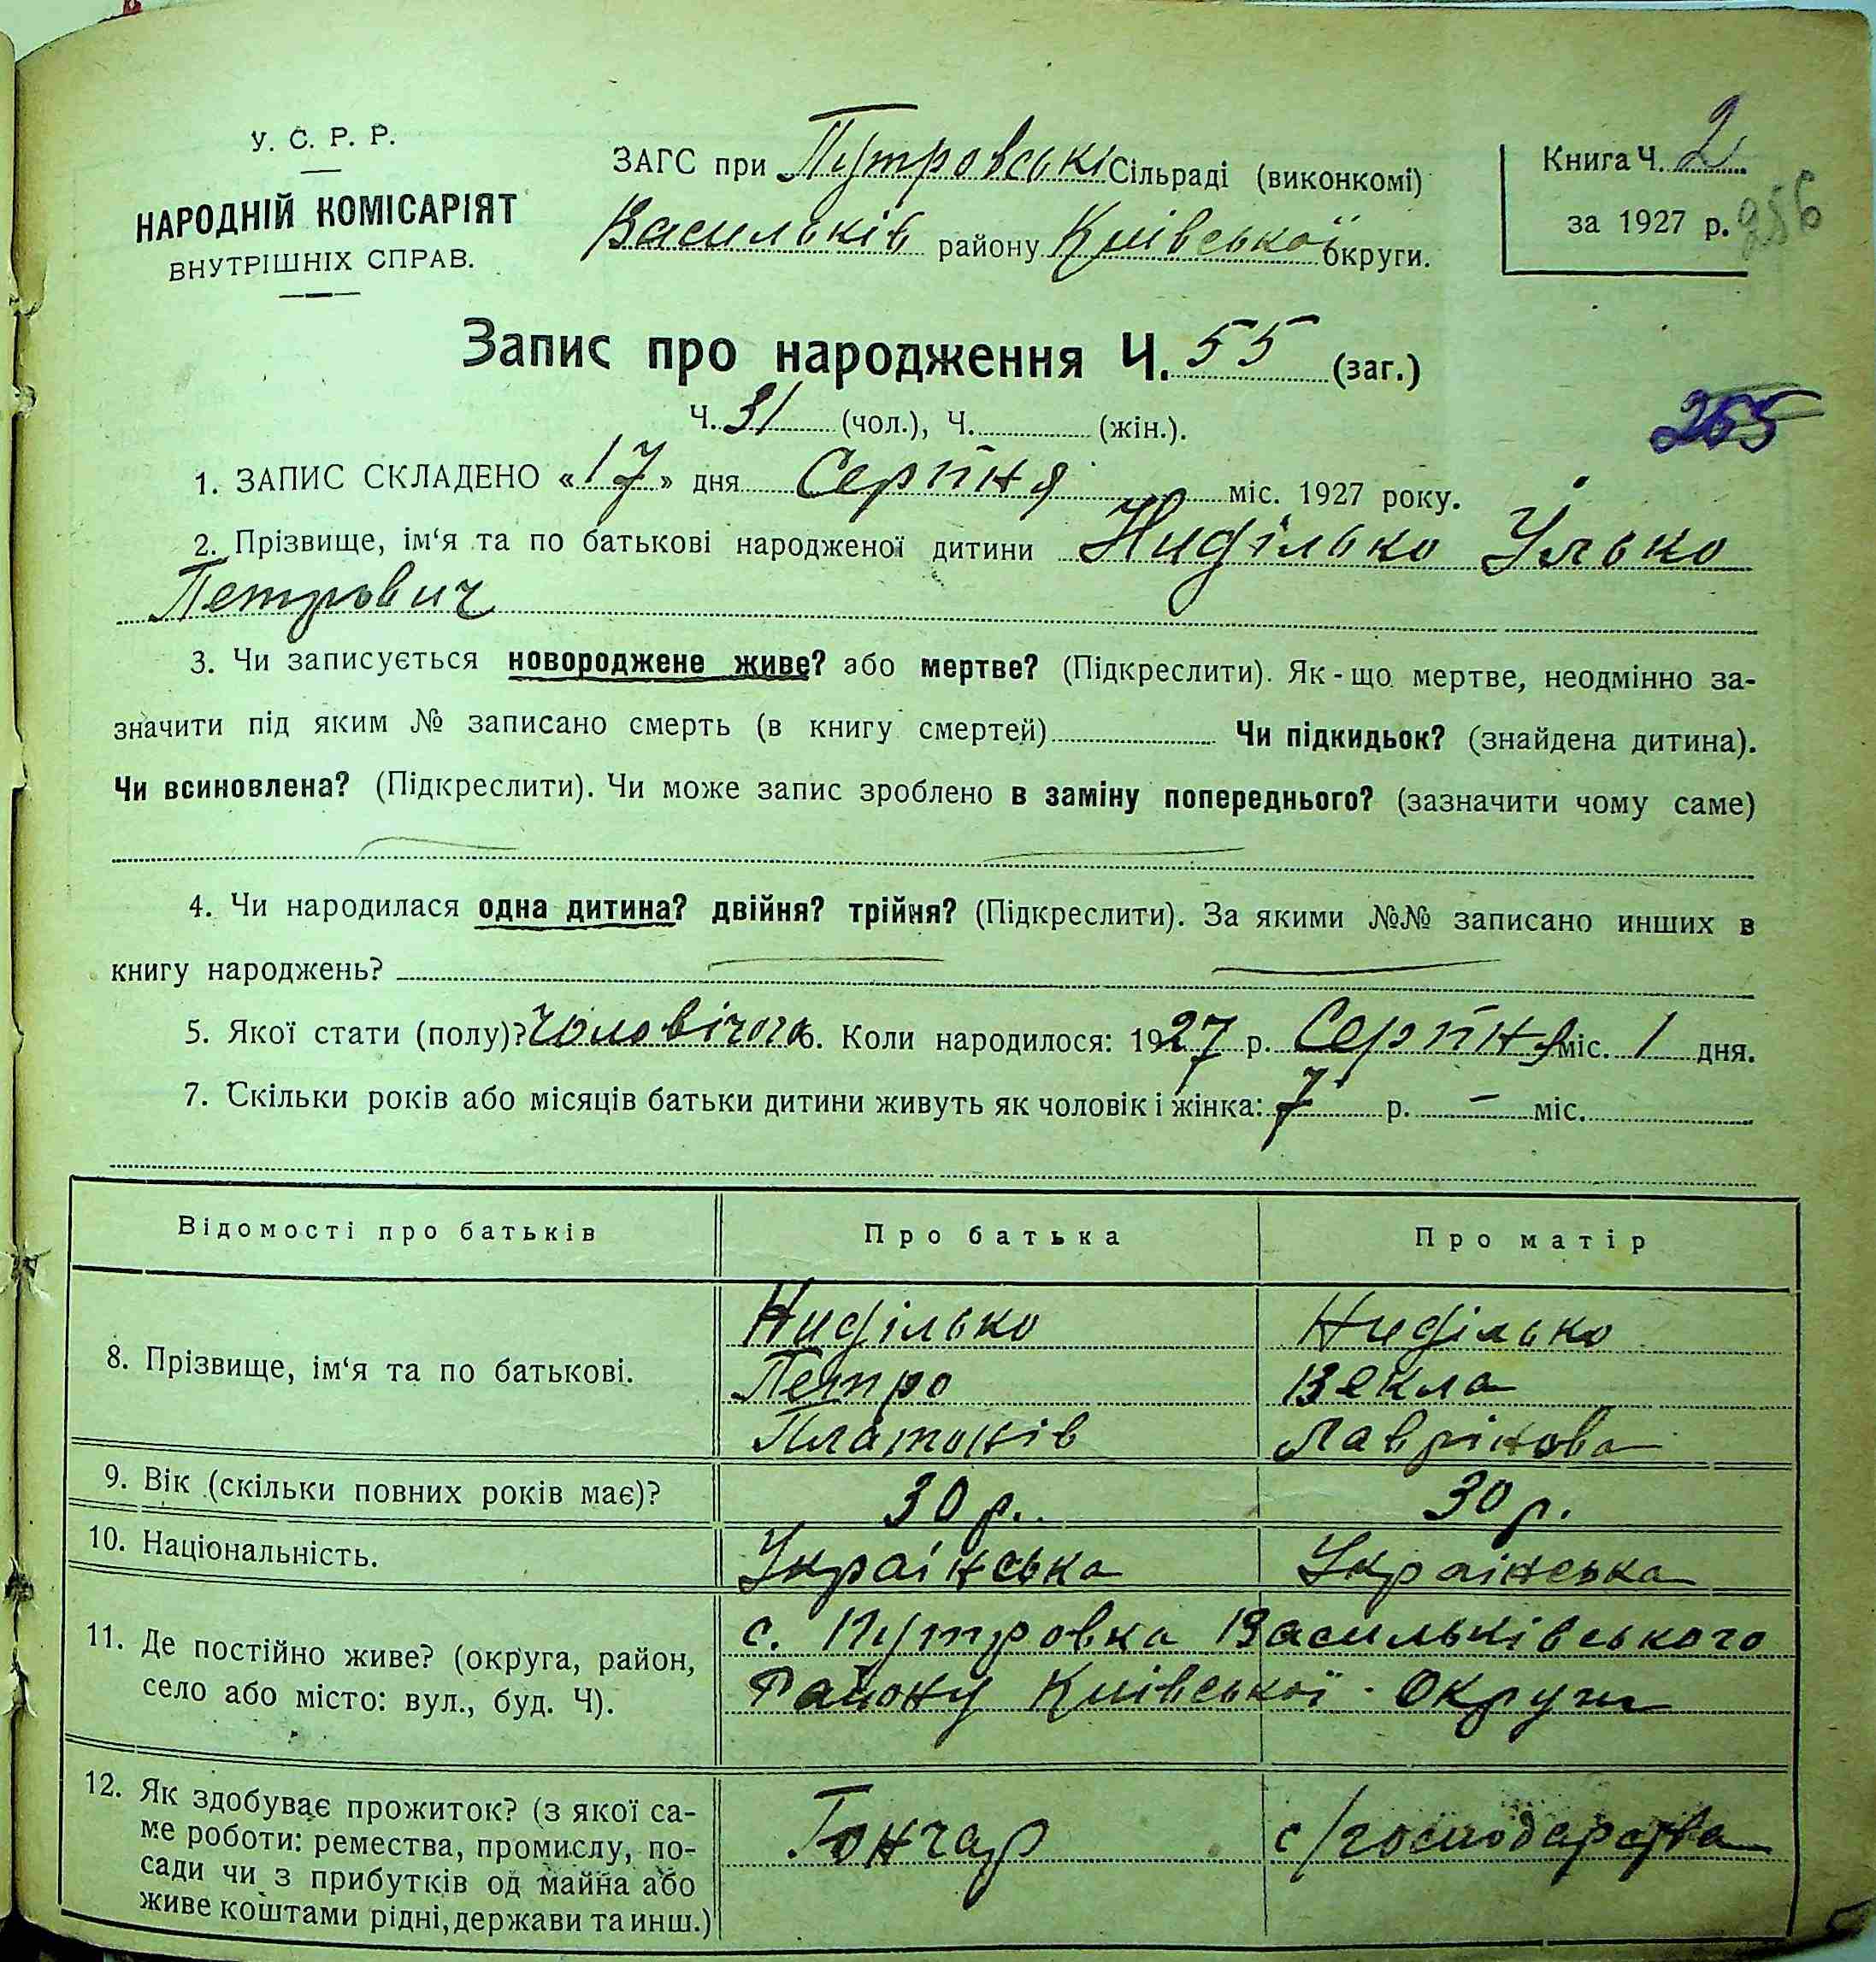 У. С. Р. Р.
НАРОДНІЙ КОМІСАРІЯТ
ВНУТРІШНІХ СПРАВ.
ЗАГС при Путровські Сільраді (виконкомі)
Васильків району Київської округи.
Книга Ч. 2
за 1927 р. 256
Запис про народження Ч. 55 (заг.)
Ч. 31 (чол.), Ч. (жін.).
255
1. ЗАПИС СКЛАДЕНО «17» дня Серпня міс. 1927 року.
2. Прізвище, ім‘я та по батькові народженої дитини Ниділько Ілько
Петрович
3. Чи записується новороджене живе? або мертве? (Підкреслити). Як-що мертве, неодмінно за-
значити під яким № записано смерть (в книгу смертей) Чи підкидьок? (знайдена дитина).
Чи всиновлена? (Підкреслити). Чи може запис зроблено в заміну попереднього? (зазначити чому саме)
4. Чи народилася одна дитина? двійня? трійня? (Підкреслити). За якими №№ записано инших в
книгу народжень?
5. Якої стати (полу)? чоловічого 6. Коли народилося: 1927 р. Серпня міс. 1 дня.
7. Скільки років або місяців батьки дитини живуть як чоловік і жінка: 7 р. – міс.
Відомості про батьків Про батька Про матір
8. Прізвище, ім‘я та по батькові.
Ниділько
Петро
Платонів
Ниділько
Векла
Лаврінова
9. Вік (скільки повних років має)? 30 р. 30 р.
10. Національність. Українська Українська
11. Де постійно живе? (округа, район,
село або місто: вул., буд. Ч).
с. Путровка Васильківського
Району Київської Округи
12. Як здобуває прожиток? (з якої са-
ме роботи: ремества, промислу, по-
сади чи з прибутків од майна або
живе коштами рідні, держави та инш.)
Гончар
с/господарства